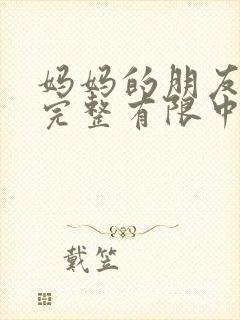 妈妈的朋友
完整有限中
戴笠